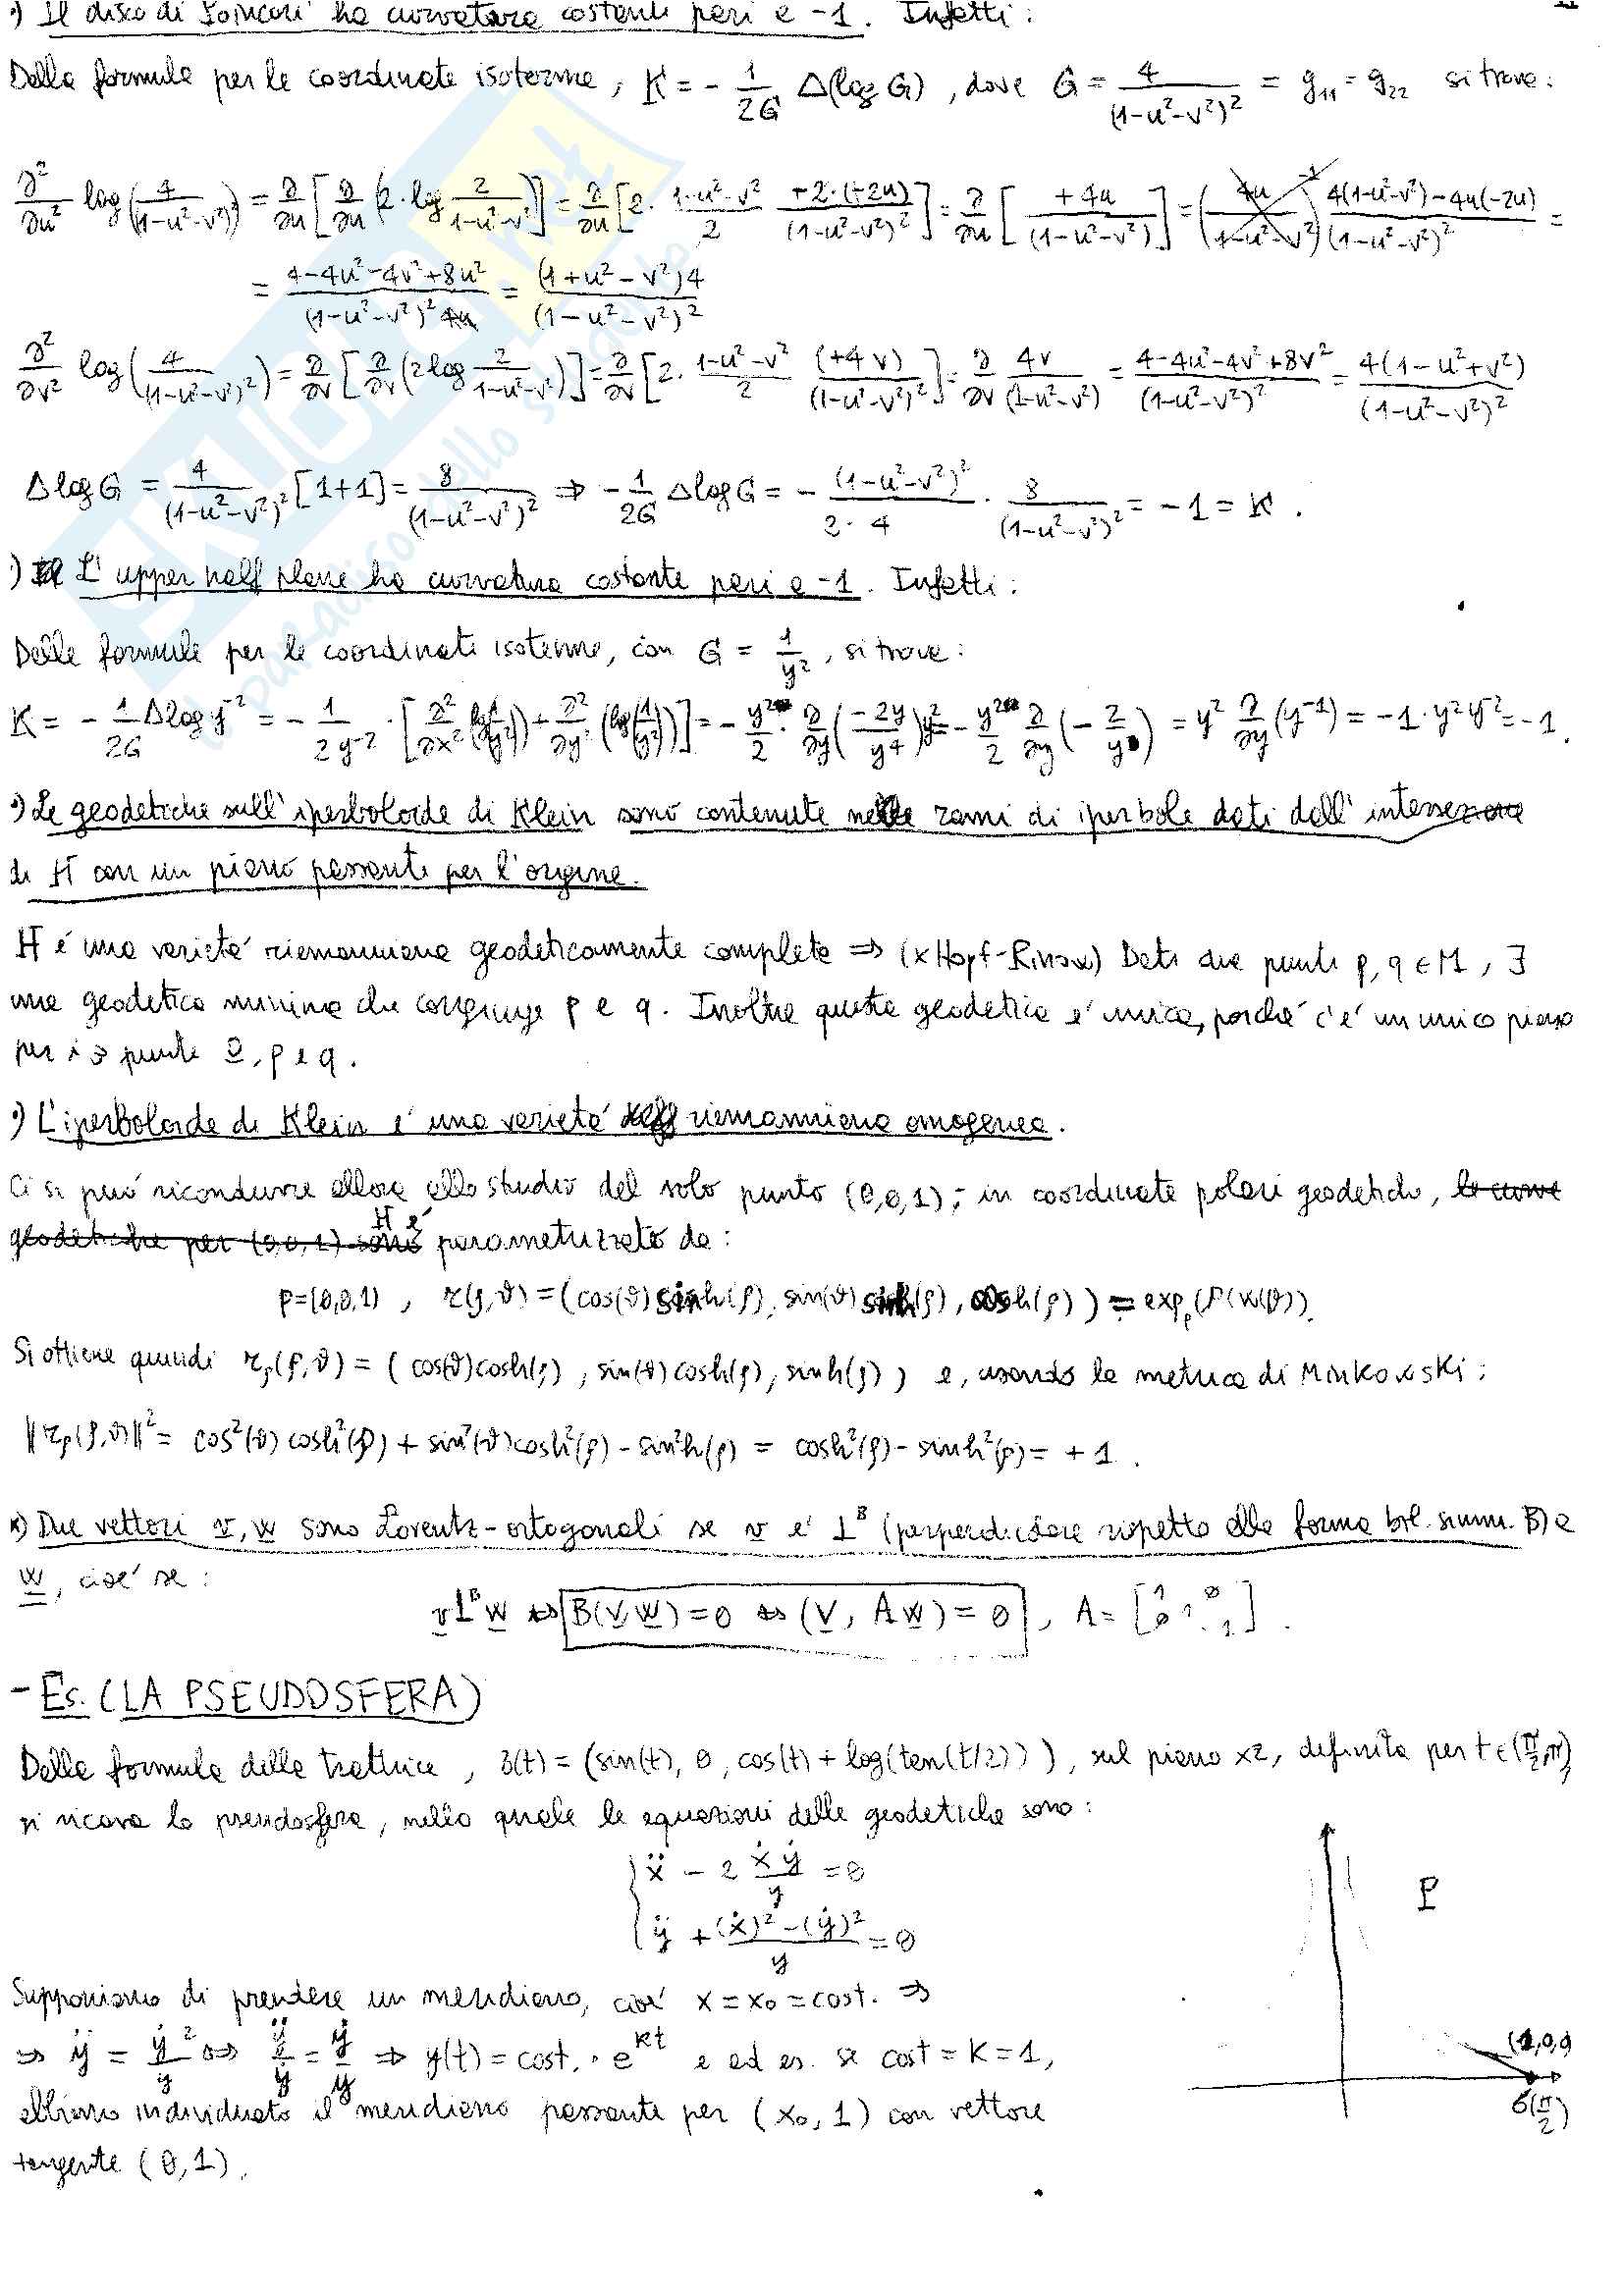 •) Il disco di Poincaré ha curvatura costante pari a -1. Infatti:
Dalla formula per le coordinate isoterme, K = - 1/2G Δ(log G), dove G = 4/(1-u²-v²)² = g₁₁ = g₂₂ si trova:
∂²/∂u² log(4/(1-u²-v²)²) = ∂/∂u [∂/∂u (2·log 2/(1-u²-v²))] = ∂/∂u [2· (1-u²-v²)/2 · (+2·(+2u))/(1-u²-v²)²] = ∂/∂u [+4u/(1-u²-v²)] = (4(1-u²-v²)-4u(-2u))/(1-u²-v²)² =
= (4-4u²-4v²+8u²)/(1-u²-v²)² = (1+u²-v²)4/(1-u²-v²)²
∂²/∂v² log(4/(1-u²-v²)²) = ∂/∂v [∂/∂v (2log 2/(1-u²-v²))] = ∂/∂v [2· (1-u²-v²)/2 · (+4v)/(1-u²-v²)²] = ∂/∂v 4v/(1-u²-v²) = (4-4u²-4v²+8v²)/(1-u²-v²)² = 4(1-u²+v²)/(1-u²-v²)²
Δ log G = 4/(1-u²-v²)² [1+1] = 8/(1-u²-v²)² ⇒ -1/2G Δ log G = - (1-u²-v²)²/(2·4) · 8/(1-u²-v²)² = -1 = K.
•) L'upper half plane ha curvatura costante pari a -1. Infatti:
Dalla formula per le coordinate isoterme, con G = 1/y², si trova:
K = - 1/2G Δ log y⁻² = - 1/(2y⁻²) · [∂²/∂x² (log(1/y²)) + ∂²/∂y² (log(1/y²))] = - y²/2 · ∂/∂y (-2y/y⁴) y² = - y²/2 ∂/∂y (- 2/y) = y² ∂/∂y (y⁻¹) = -1·y²y⁻² = -1.
•) Le geodetiche sull'iperboloide di Klein sono contenute nelle rami di iperbole dati dall'intersezione
di H con un piano passante per l'origine.
H è una varietà riemanniana geodeticamente completa ⇒ (x Hopf-Rinow) Dati due punti p, q ∈ M, ∃
una geodetica minima che congiunge p e q. Inoltre questa geodetica è unica, perché c'è un unico piano
per i 3 punti 0, p e q.
•) L'iperboloide di Klein è una varietà riemanniana omogenea.
Ci si può ricondurre allora allo studio del solo punto (0,0,1); in coordinate polari geodetiche, le curve
geodetiche per (0,0,1) sono H è parametrizzato da:
p=(0,0,1), r(ρ,ϑ) = (cos(ϑ)sinh(ρ), sin(ϑ)sinh(ρ), cosh(ρ)) = expₚ(ρ(w(ϑ)).
Si ottiene quindi rρ(ρ,ϑ) = (cos(ϑ)cosh(ρ), sin(ϑ)cosh(ρ), sinh(ρ)) e, usando la metrica di Minkowski:
‖rρ(ρ,ϑ)‖² = cos²(ϑ)cosh²(ρ) + sin²(ϑ)cosh²(ρ) - sin²h(ρ) = cosh²(ρ) - sinh²(ρ) = +1.
•) Due vettori v, w sono Lorentz-ortogonali se v è ⊥ᴮ (perpendicolare rispetto alla forma bil. simm. B) a
w, cioè se:
v ⊥ᴮ w ⇔ B(v,w) = 0 ⇔ (v, Aw) = 0, A =
- Es. (LA PSEUDOSFERA)
Dalla formula della trattrice, δ(t) = (sin(t), 0, cos(t) + log(tan(t/2))), sul piano xz, definita per t∈(π/2,π),
si ricava la pseudosfera, nella quale le equazioni delle geodetiche sono:
ẍ - 2 ẋẏ/y = 0
ÿ + ((ẋ)²-(ẏ)²)/y = 0
P
Supponiamo di prendere un meridiano, cioè x = x₀ = cost. ⇒
⇒ ÿ = ẏ²/y ⇔ ÿ/ẏ = ẏ/y ⇒ y(t) = cost. · e^kt e ad es. se cost = K = 1,
(1,0,0)
abbiamo individuato il meridiano passante per (x₀, 1) con vettore
δ(π/2)
tangente (0,1).